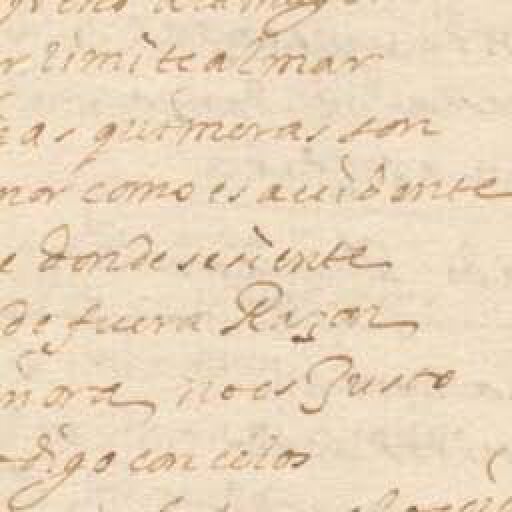 r limite al mar
as quimeras son
mor como es accidente
e donde se siente
de fuera Razon
ñora no es Justo
digo con celos